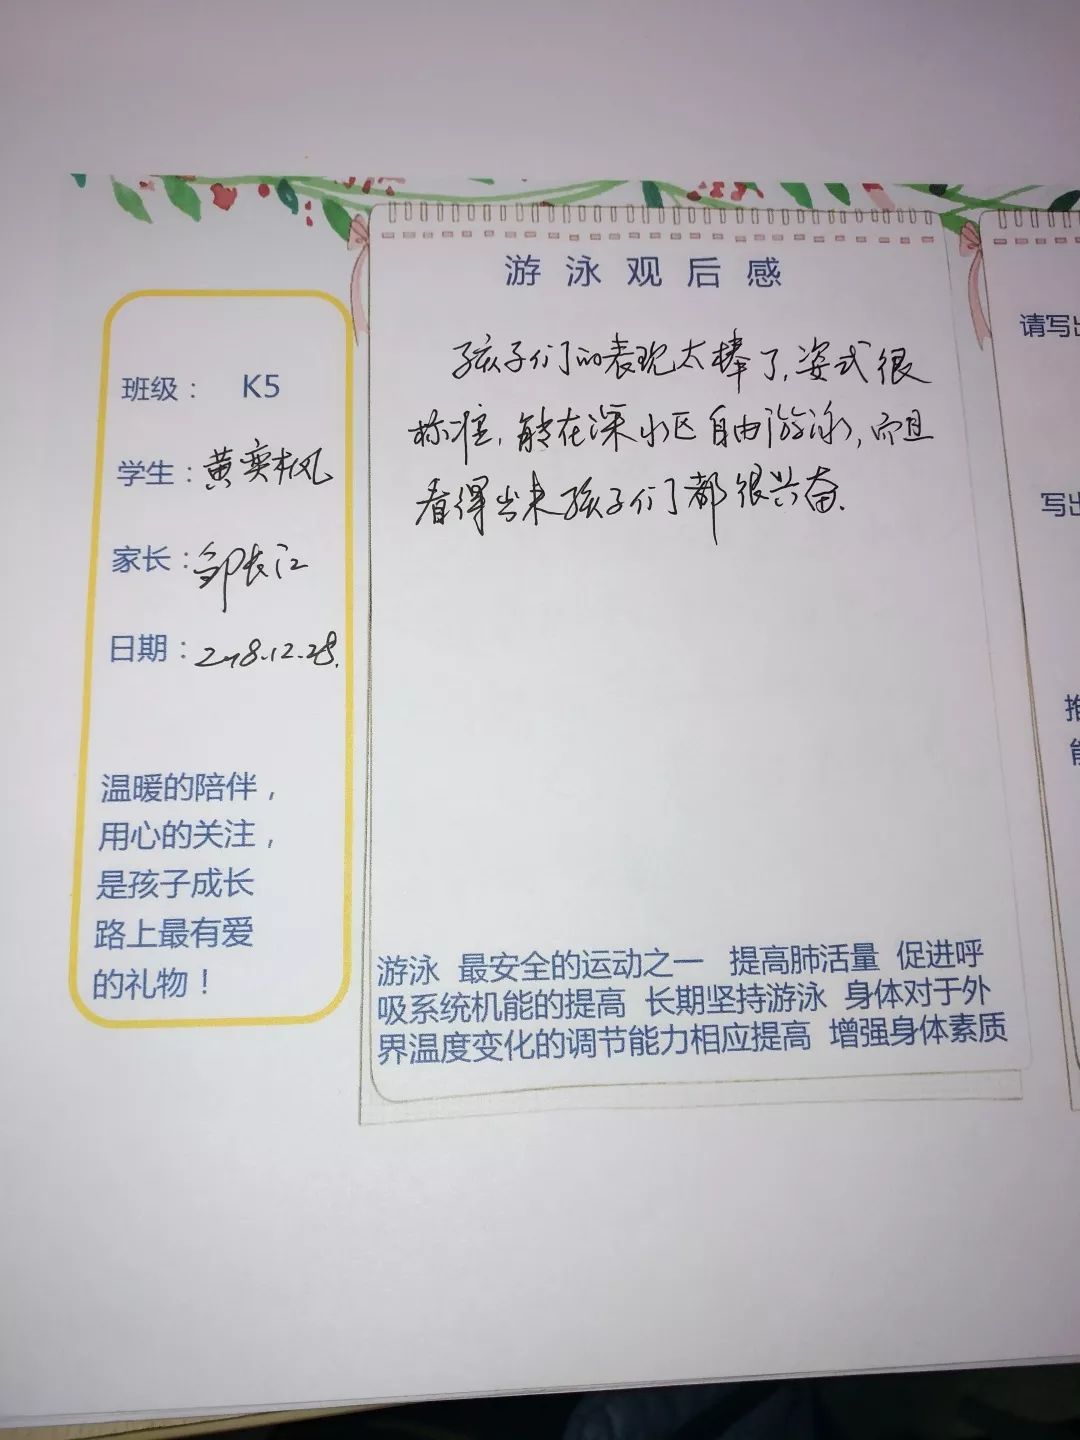 游泳观后感
孩子们的表现太棒了,姿式很
标准,能在深水区自由游泳,而且
看得出来孩子们都很兴奋.
班级： K5
学生：黄奕枫
家长：邹长江
日期：2018.12.28.
温暖的陪伴，
用心的关注，
是孩子成长
路上最有爱
的礼物！
游泳 最安全的运动之一 提高肺活量 促进呼
吸系统机能的提高 长期坚持游泳 身体对于外
界温度变化的调节能力相应提高 增强身体素质
请写出
写出
推
能